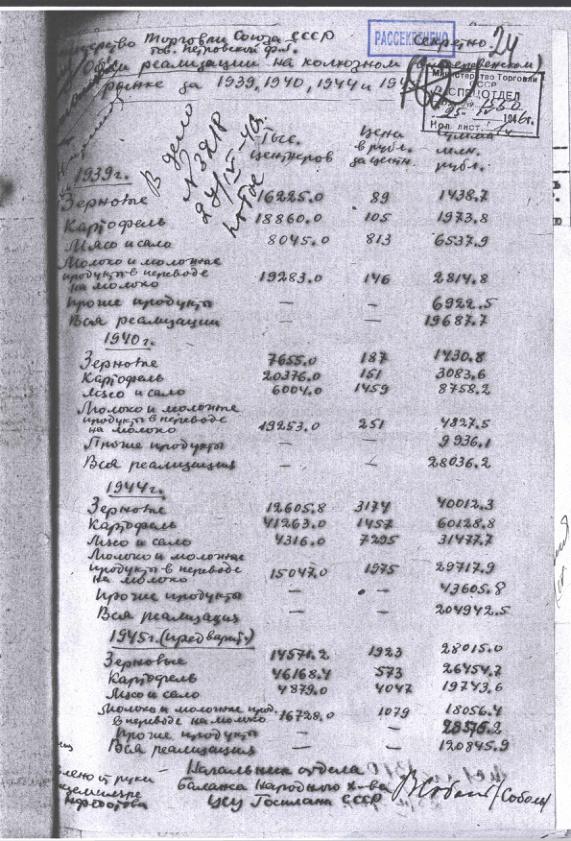 Министерство Торговли Союза ССР
тов. Петровской Ф.И.
РАССЕКРЕЧЕНО
Секретно.
24
Объём реализации на колхозном (внедеревенском)
рынке за 1939, 1940, 1944 и
Министерство Торговли
СССР
СПЕЦОТДЕЛ
25
Кол. лист.
В дело
N 3218
Тыс. центнеров Цена в рубл. за центн. Сумма млн. рубл.
1939г.
Зерновые 16225.0 89 1438.7
Картофель 18860.0 105 1973.8
Мясо и сало 8045.0 813 6537.9
Молоко и молочные
продукты в переводе
на молоко 19283.0 146 2814.8
Прочие продукты — — 6922.5
Вся реализации 19687.7
1940г.
Зерновые 7655.0 187 1430.8
Картофель 20376.0 151 3083.6
Мясо и сало 6004.0 1459 8758.2
Молоко и молочные
продукты в переводе
на молоко 19253.0 251 4827.5
Прочие продукты — — 9936.1
Вся реализация — — 28036.2
1944г.
Зерновые 12605.8 3174 40012.3
Картофель 41263.0 1457 60128.8
Мясо и сало 4316.0 7295 31477.7
Молоко и молочные
продукты в переводе
на молоко 15047.0 1975 29717.9
Прочие продукты — — 43605.8
Вся реализация — — 204942.5
1945г. (предварит.)
Зерновые 14571.2 1923 28015.0
Картофель 46168.4 573 26454.7
Мясо и сало 4879.0 4047 19743.6
Молоко и молочные прод.
в переводе на молоко 16728.0 1079 18056.4
Прочие продукты — — 28576.2
Вся реализация — — 120845.9
Начальник отдела
Баланса Народного х-ва
ЦСУ Госплана СССР